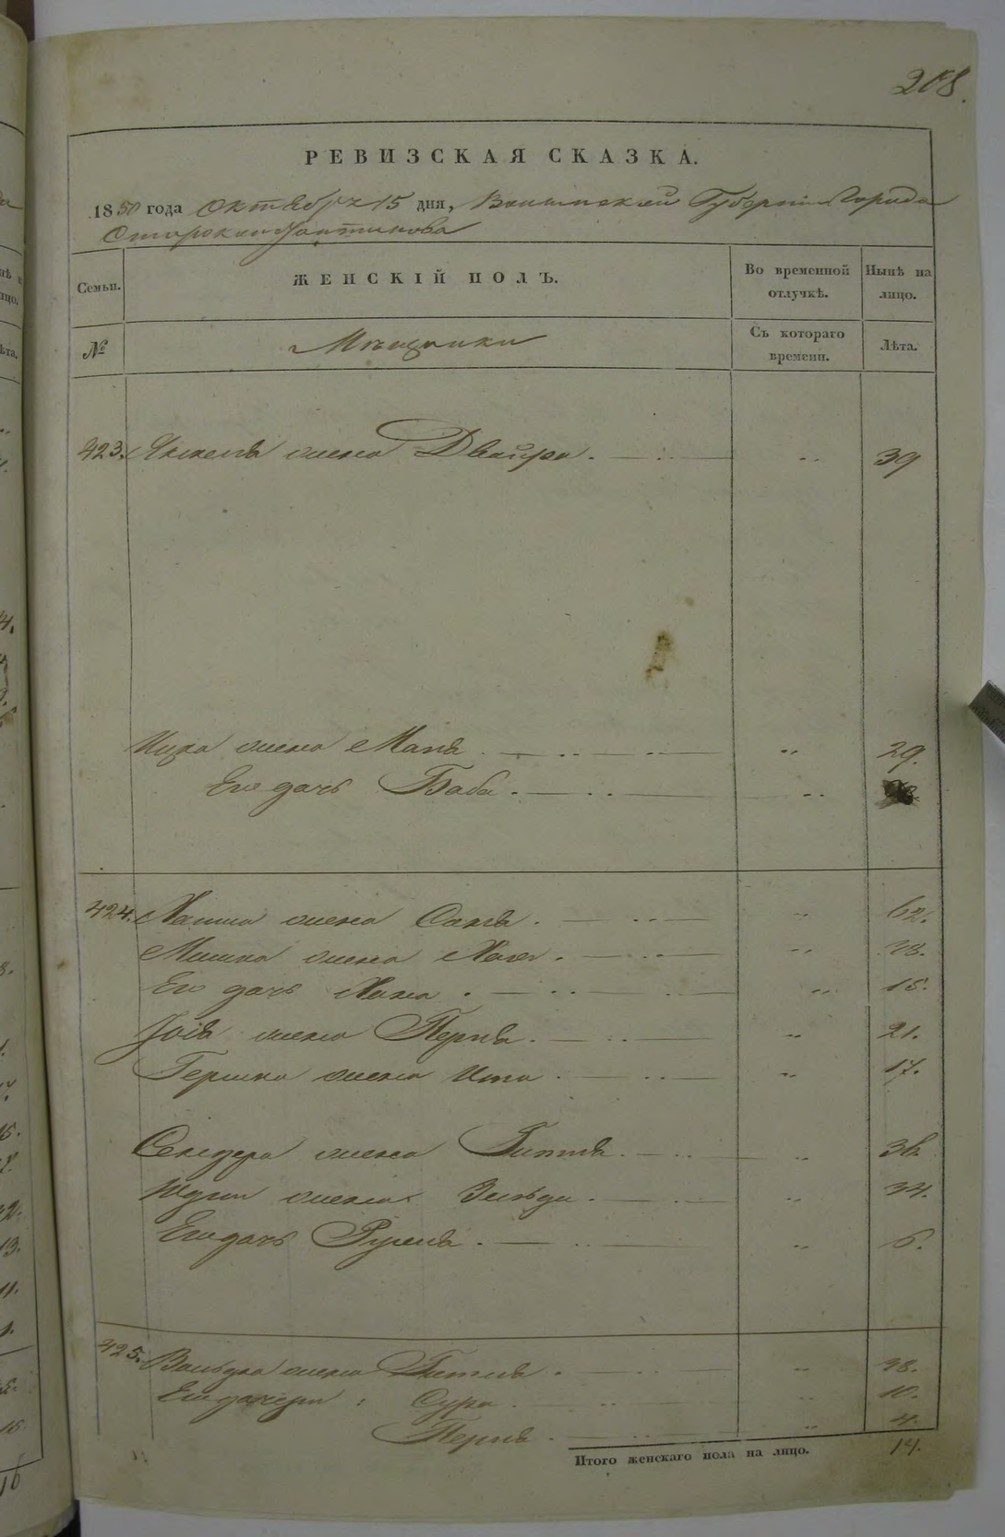 208.
РЕВИЗСКАЯ СКАЗКА.
1850 года Октября 15 дня, Волынской Губерніи Города
Староконстантинова
Семьи. ЖЕНСКІЙ ПОЛЪ. Во временной отлучкѣ. Нынѣ на лицо.
№ Мѣщанки Съ котораго времени. Лѣта.
423. Янкеля жена Двойра. 39
Ицка жена Маля 29.
Его дочь Баба.
424. жена Сося. 62.
Мошка жена Хая.
Его дочь Хана. 15.
жена Перля. 21.
Гершка жена Ита. 17.
Сендера жена Гитля.
Юдки жена
Его дочь Рухля. 6.
425. жена Гитля. 28.
Его дочери: Сура. 10.
Перля. 4.
Итого женскаго пола на лицо. 14.